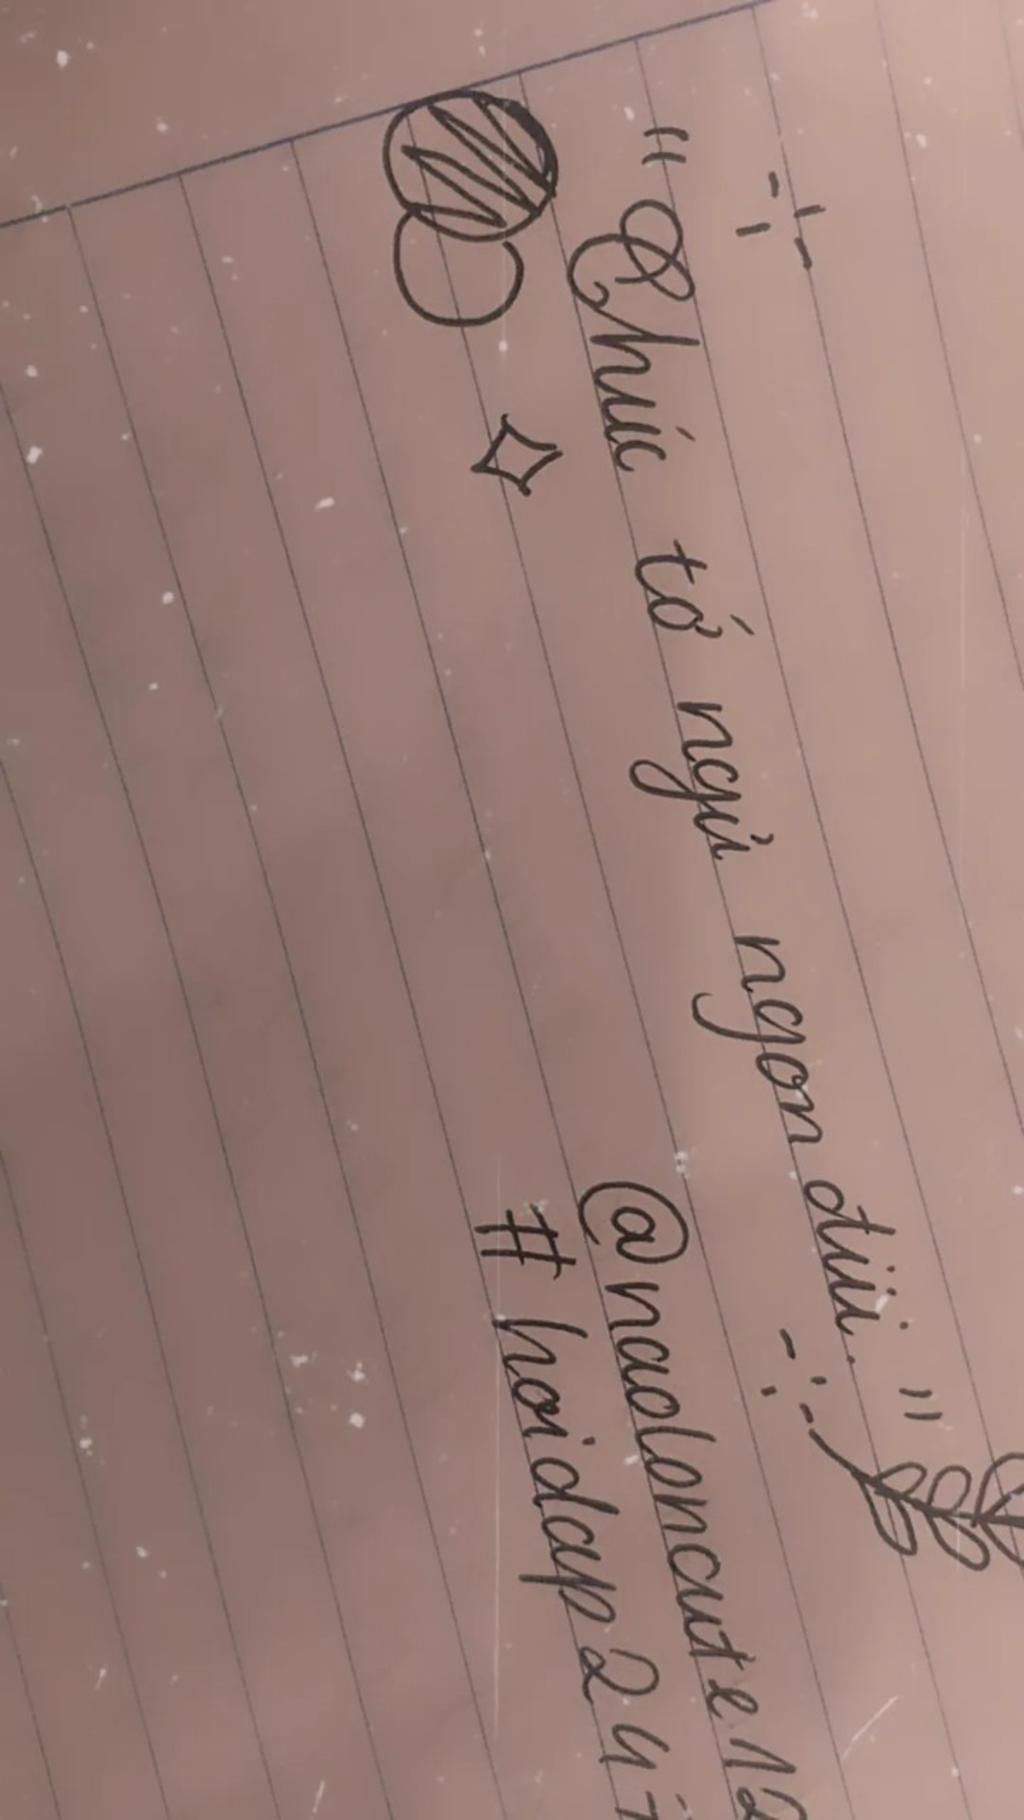 "Chúc tớ ngủ ngon điii."
@naoloncute.12
#hoidap247